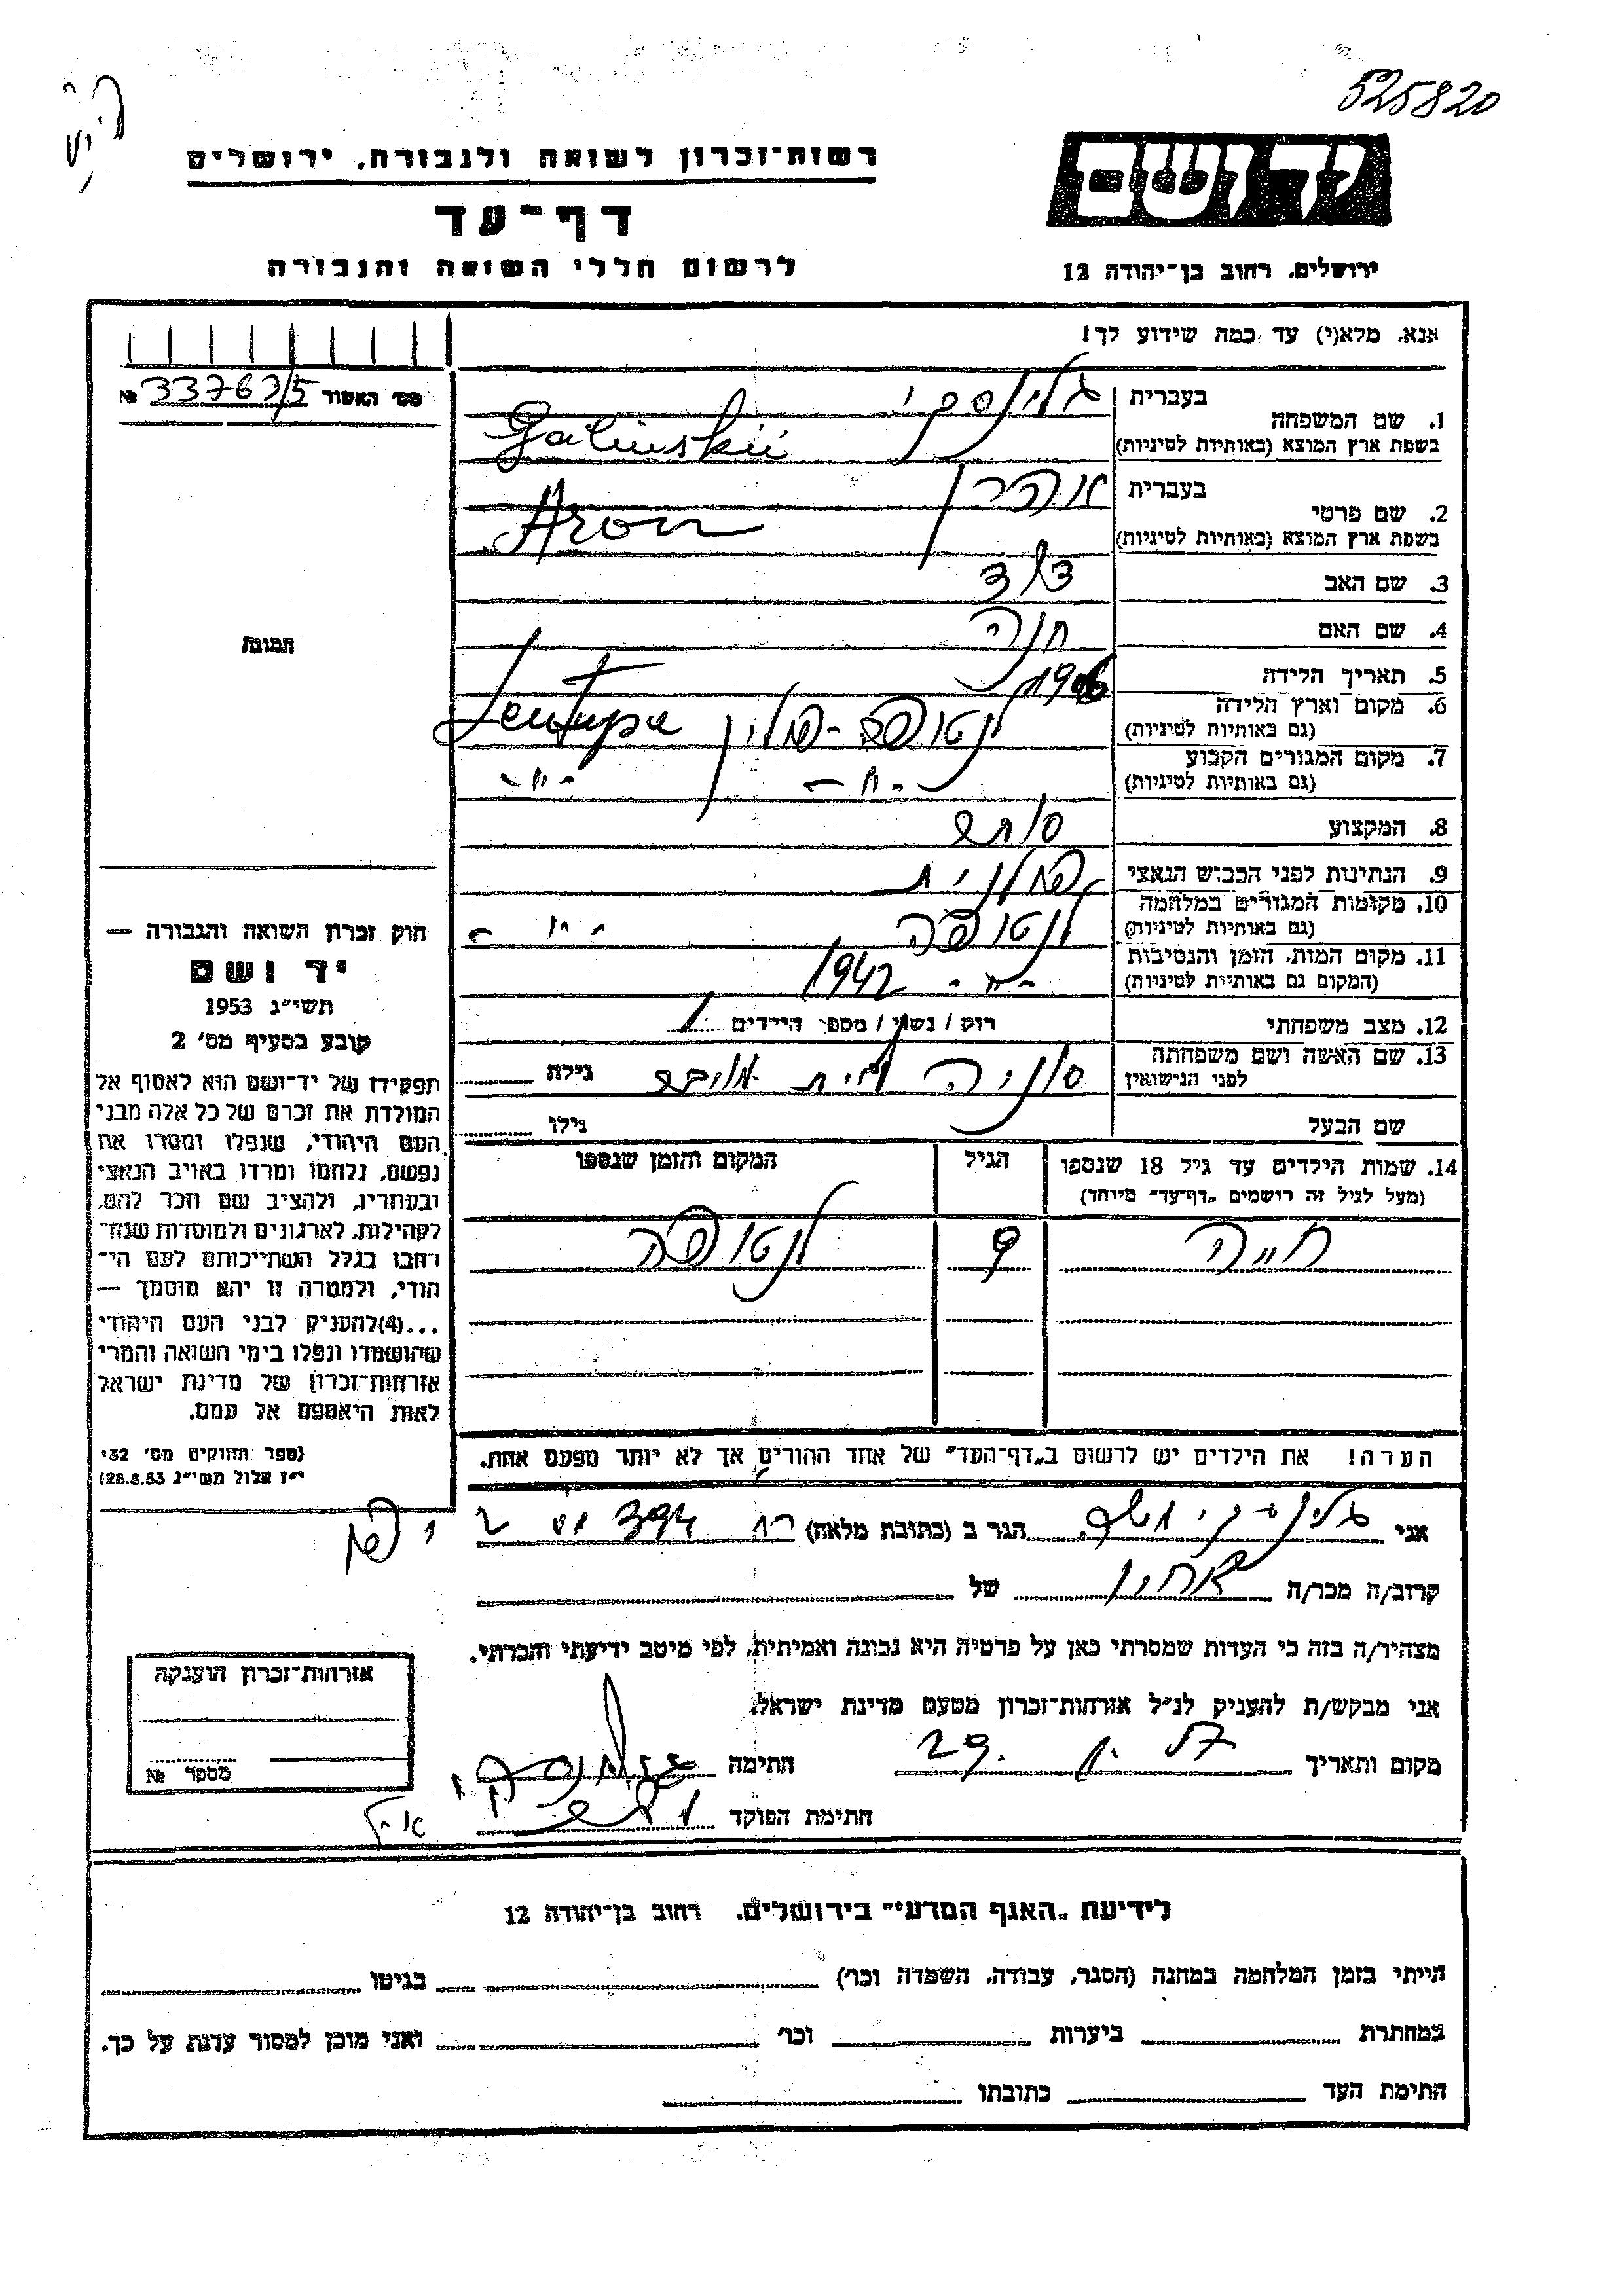 525820
יד ושם
רשות־זכרון לשואה ולגבורה, ירושלים
דף־עד
לרשום חללי השואה והגבורה
ירושלים, רחוב בן־יהודה 12
אנא, מלא(י) עד כמה שידוע לך!
מס׳ האסור 33763/5 №
1. שם המשפחה
בעברית גלינסקי
בשפת ארץ המוצא (באותיות לטיניות) Galinskii
2. שם פרטי
בעברית אהרן
בשפת ארץ המוצא (באותיות לטיניות) Aron
3. שם האב דוד
4. שם האם חנה
תמונה
5. תאריך הלידה 1906
6. מקום וארץ הלידה
(גם באותיות לטיניות) לנטופה - פולין Lentupa
7. מקום המגורים הקבוע
(גם באותיות לטיניות) - " - - " -
8. המקצוע סוחר
9. הנתינות לפני הכבוש הנאצי פולנית
10. מקומות המגורים במלחמה
(גם באותיות לטיניות) לנטופה - " -
11. מקום המות, הזמן והנסיבות
(המקום גם באותיות לטיניות) - " - 1942
12. מצב משפחתי רוק / נשוי / מספר הילדים 1
13. שם האשה ושם משפחתה
לפני הנישואין סוניה לבית גילה
שם הבעל גילו
14. שמות הילדים עד גיל 18 שנספו
(מעל לגיל זה רושמים „דף־עד” מיוחד)
הגיל
המקום והזמן שנספו
חיה 9 לנטופה
הערה! את הילדים יש לרשום ב„דף־העד” של אחד ההורים אך לא יותר מפעם אחת.
חוק זכרון השואה והגבורה —
יד ושם
תשי״ג 1953
קובע בסעיף מס׳ 2
תפקידו של יד־ושם הוא לאסוף אל
המולדת את זכרם של כל אלה מבני
העם היהודי, שנפלו ומסרו את
נפשם, נלחמו ומרדו באויב הנאצי
ובעוזריו, ולהציב שם וזכר להם,
לקהילות, לארגונים ולמוסדות שנח־
רבו בגלל השתייכותם לעם הי־
הודי, ולמטרה זו יהא מוסמך —
...(4)להעניק לבני העם היהודי
שהושמדו ונפלו בימי השואה והמרי
אזרחות־זכרון של מדינת ישראל
לאות היאספם אל עמם.
(ספר החוקים מס׳ 132
י״ז אלול תשי״ג 28.8.53)
אני גלינסקי משה הגר ב (כתובת מלאה) רח 394 יפו
קרוב/ה מכר/ה אחיו של
מצהיר/ה בזה כי העדות שמסרתי כאן על פרטיה היא נכונה ואמיתית, לפי מיטב ידיעתי והכרתי.
אני מבקש/ת להעניק לנ״ל אזרחות־זכרון מטעם מדינת ישראל.
מקום ותאריך 29. חתימה גלינסקי
חתימת הפוקד
אזרחות־זכרון הוענקה
מספר №
לידיעת „האגף המדעי” בירושלים, רחוב בן־יהודה 12
הייתי בזמן המלחמה במחנה (הסגר, עבודה, השמדה וכו׳) בגיטו
במחתרת ביערות וכו׳ ואני מוכן למסור עדות על כך.
חתימת העד כתובתו